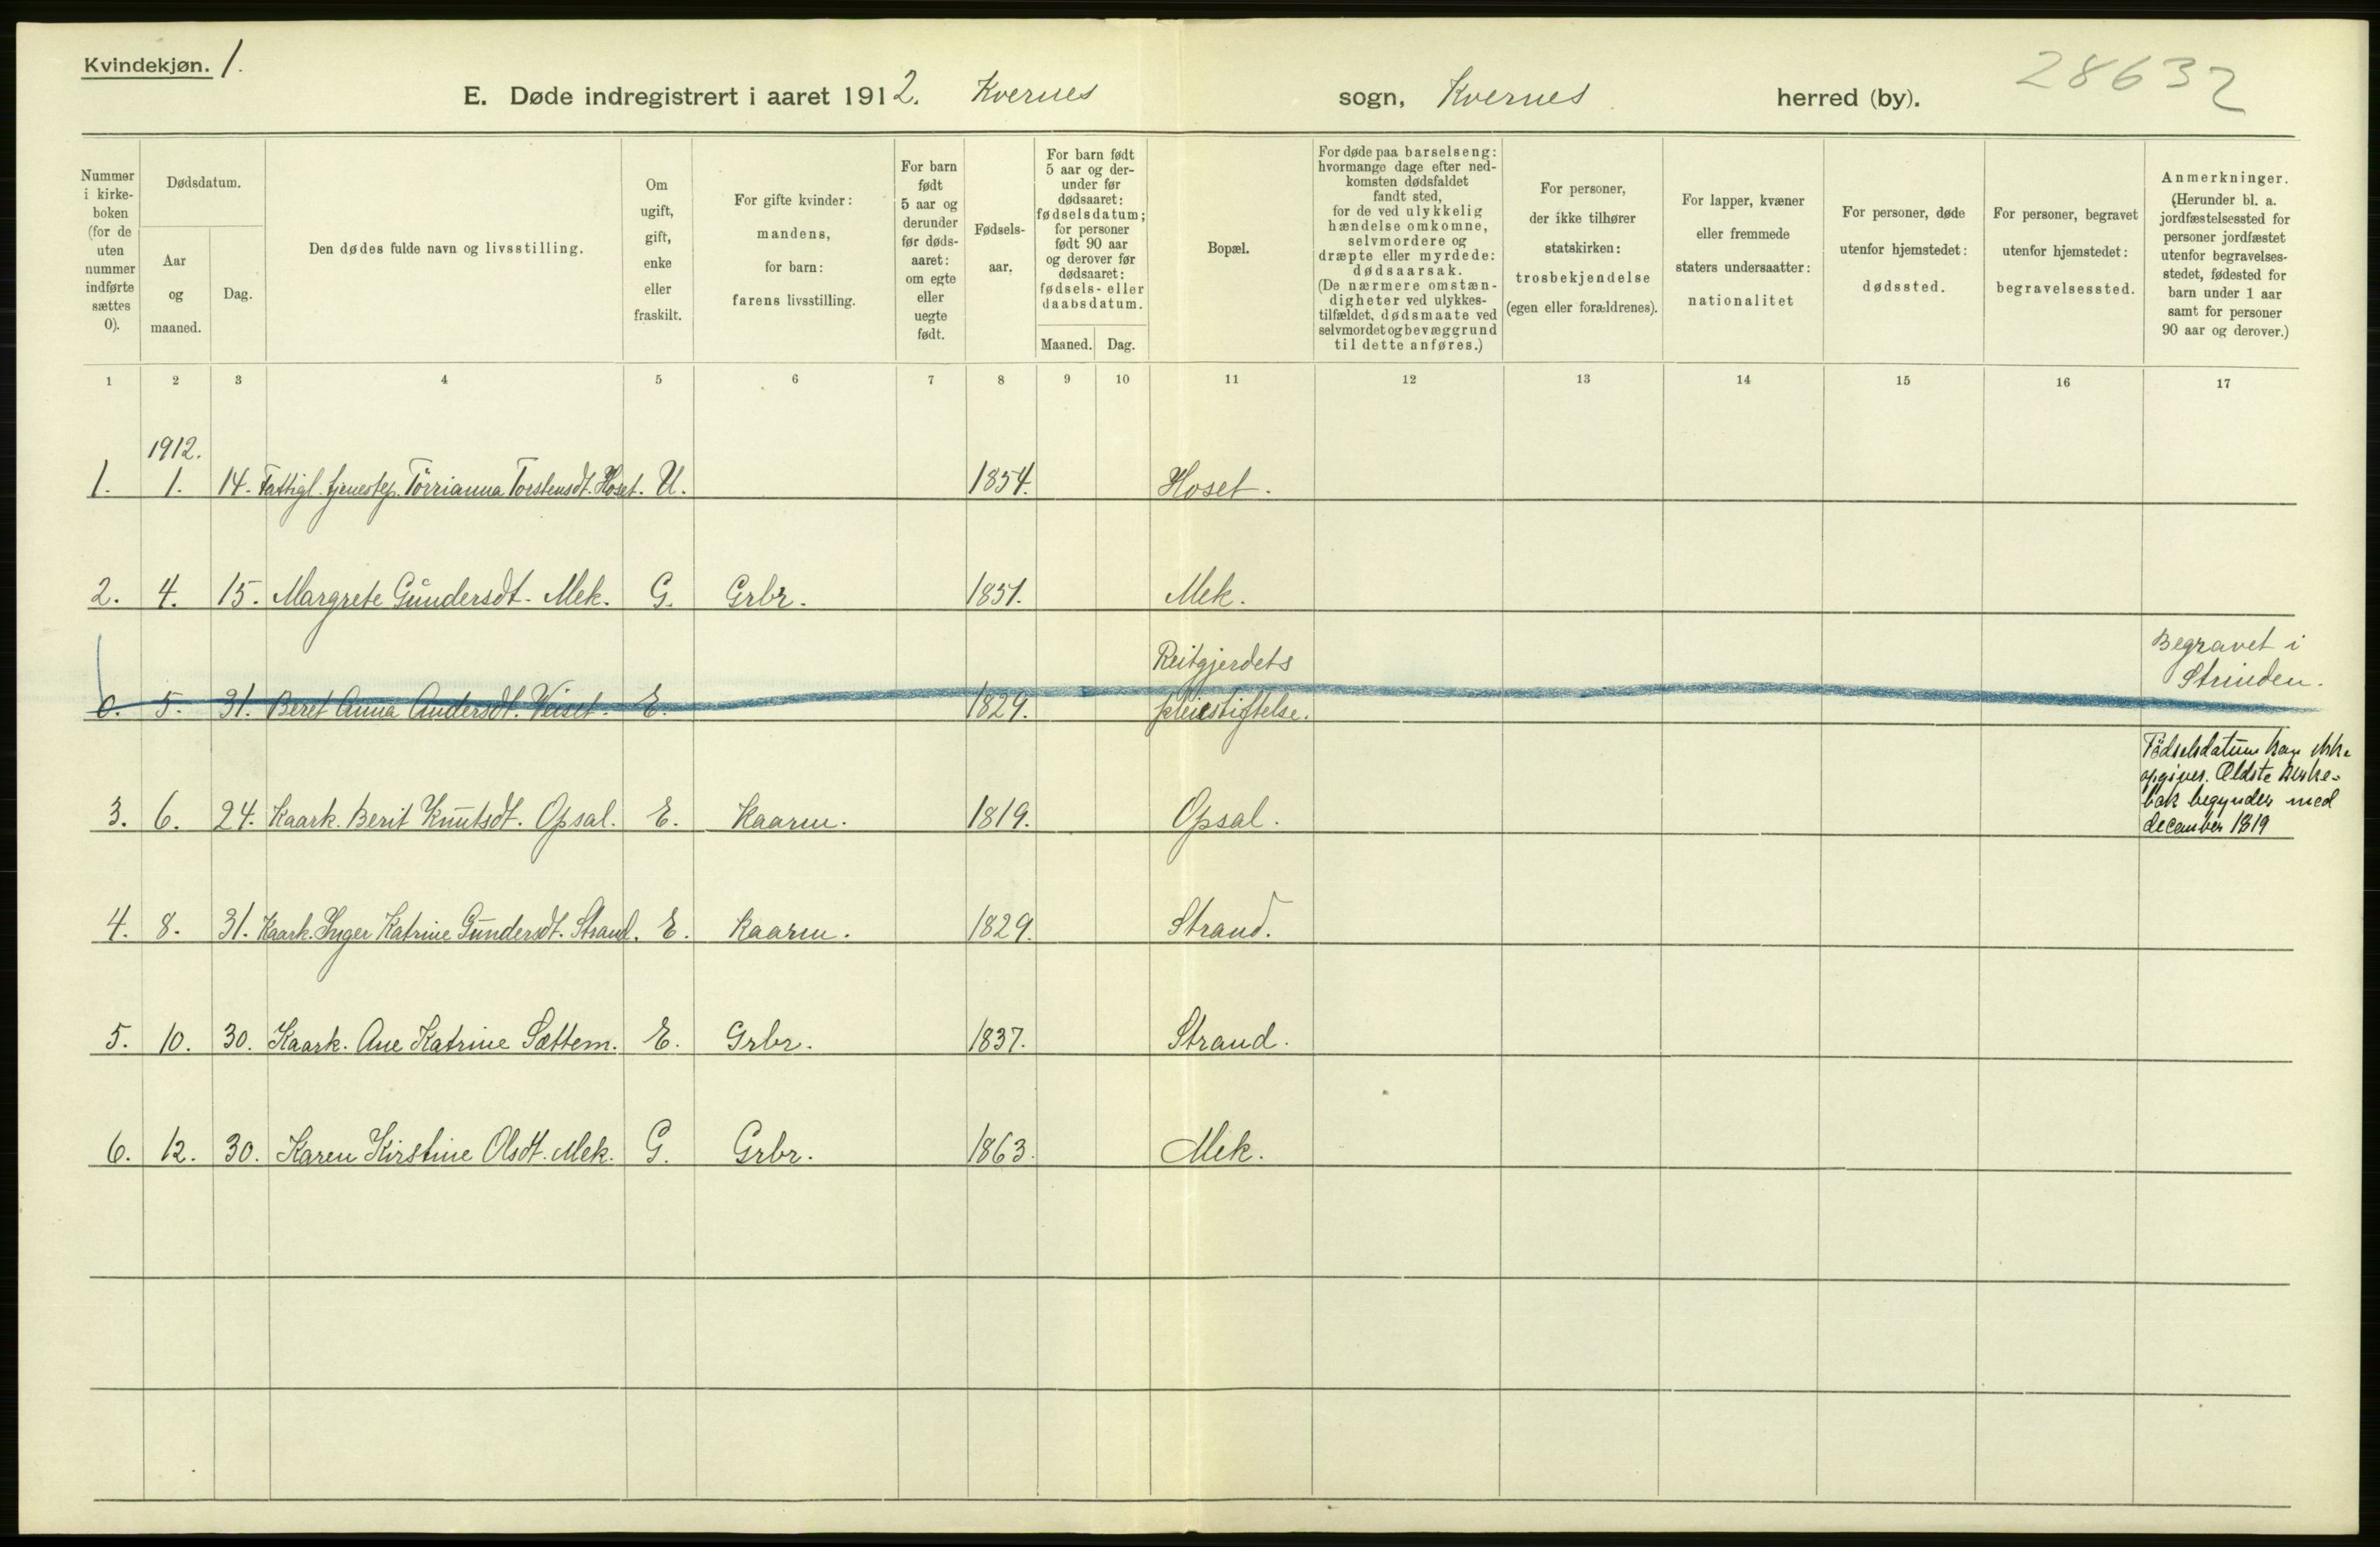 Kvindekjøn. 1.
28632
E. Døde indregistrert i aaret 1912. Kvernes sogn, Kvernes herred (by).
Nummer i kirke- boken (for de uten nummer indførte sættes 0).
Dødsdatum.
Aar og maaned.
Dag.
Den dødes fulde navn og livsstilling.
Om ugift, gift, enke eller fraskilt.
For gifte kvinder: mandens, for barn: farens livsstilling.
For barn født 5 aar og derunder før døds- aaret: om egte eller uegte født.
Fødsels- aar.
For barn født 5 aar og der- under før dødsaaret: fødselsdatum; for personer født 90 aar og derover før dødsaaret: fødsels- eller daabsdatum.
Maaned. Dag.
Bopæl.
For døde paa barselseng: hvormange dage efter ned- komsten dødsfaldet fandt sted, for de ved ulykkelig hændelse omkomne, selvmordere og dræpte eller myrdede: dødsaarsak. (De nærmere omstæn- digheter ved ulykkes- tilfældet, dødsmaate ved selvmordet og bevæggrund til dette anføres.)
For personer, der ikke tilhører statskirken: trosbekjendelse (egen eller forældrenes).
For lapper, kvæner eller fremmede staters undersaatter: nationalitet
For personer, døde utenfor hjemstedet: dødssted.
For personer, begravet utenfor hjemstedet: begravelsessted.
Anmerkninger. (Herunder bl. a. jordfæstelsessted for personer jordfæstet utenfor begravelses- stedet, fødested for barn under 1 aar samt for personer 90 aar og derover.)
1 2 3 4 5 6 7 8 9 10 11 12 13 14 15 16 17
1912.
1. 1. 14. Fattigl. tjenestep. Törrianna Torstensdt. Hoset. U. 1854. Hoset.
2. 4. 15. Margrete Gundersdt. Mek. G. Grbr. 1851. Mek.
Reitgjerdets
Begravet i
Strinden.
0. 5. 31. Beret Anna Andersdt. Veiset. E. 1829. pleiestiftelse.
Födselsdatum kan ikke
opgives. Ældste kirke-
bok begynder med
december 1819
3. 6. 24. Kaark. Berit Knutsdt. Opsal. E. Kaarm. 1819. Opsal.
4. 8. 31. Kaark. Inger Katrine Gundersdt. Strand. E. Kaarm. 1829. Strand.
5. 10. 30. Kaark. Ane Katrine Sættem. E. Grbr. 1837. Strand.
6. 12. 30. Karen Kirstine Olsdt. Mek. G. Grbr. 1863. Mek.